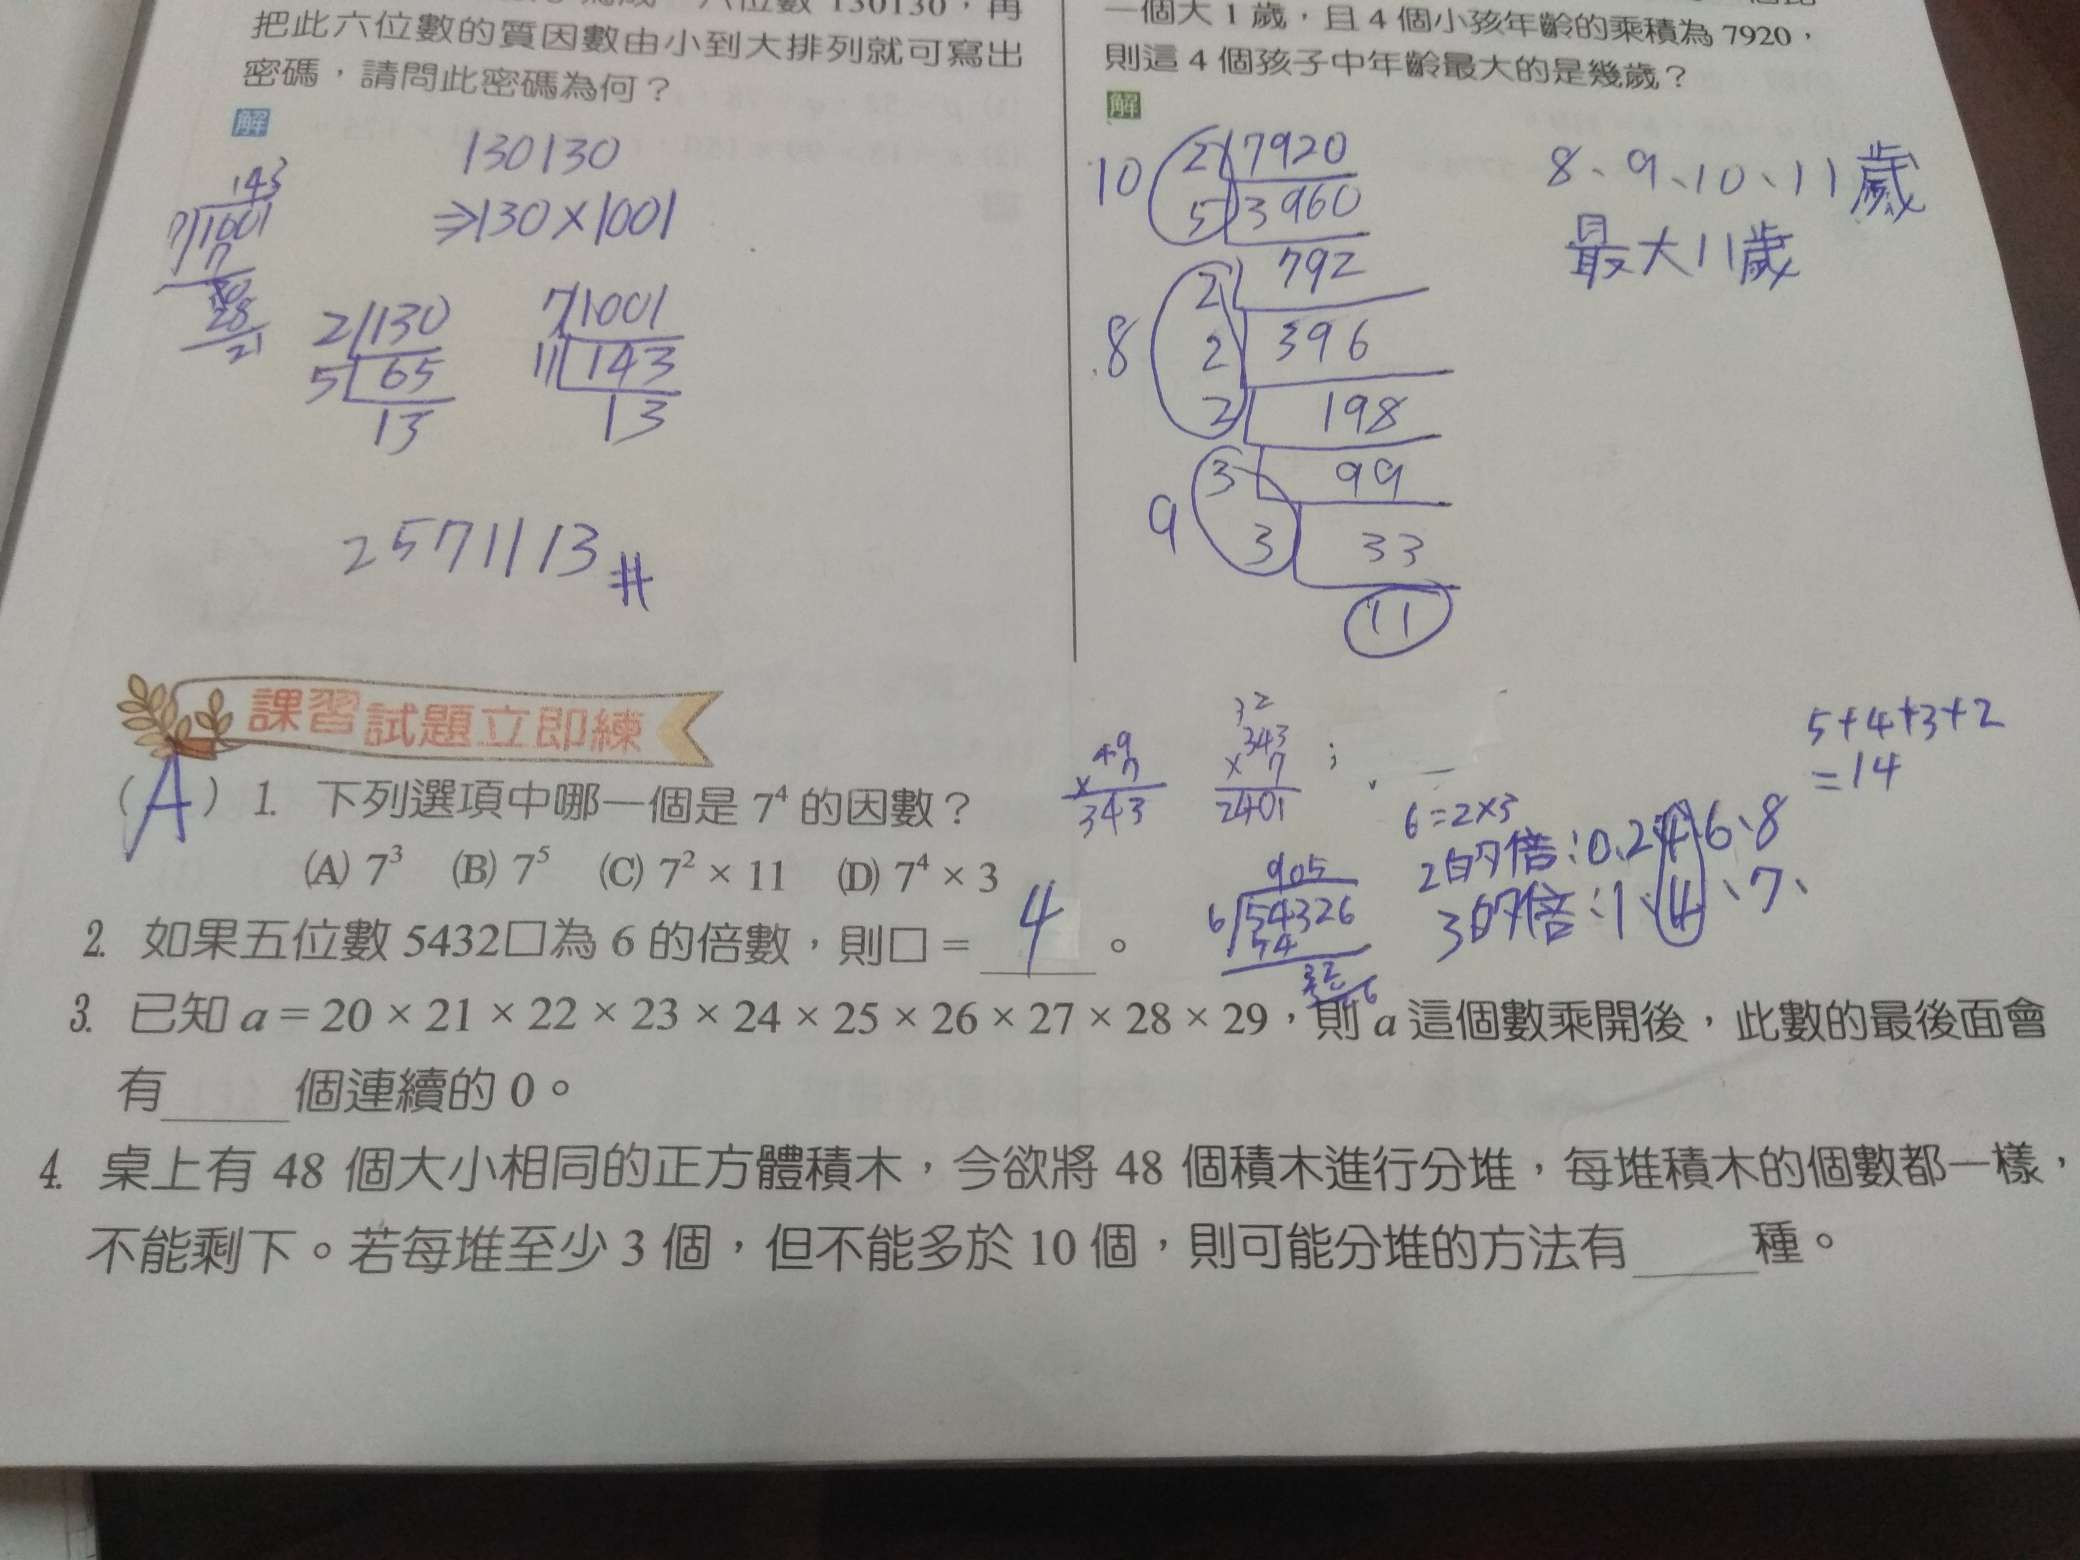 六位數 130130，再
把此六位數的質因數由小到大排列就可寫出
密碼，請問此密碼為何？
解
130130
⇒130×1001
143
7 1001
7
30
28
21
2 130
5 65
13
7 1001
11 143
13
25711 13 #
一個大 1 歲，且 4 個小孩年齡的乘積為 7920，
則這 4 個孩子中年齡最大的是幾歲？
解
10 2 7920
5 3960
8 2 792
2 396
2 198
9 3 99
3 33
11
8、9、10、11歲
最大11歲
課習試題立即練
49
×7
343
32
343
×7
2401
5+4+3+2
=14
（A）1. 下列選項中哪一個是 7⁴ 的因數？
(A) 7³ (B) 7⁵ (C) 7² × 11 (D) 7⁴ × 3
6=2×3
2的倍:0、2、4、6、8
3的倍:1、4、7、
905
6 54326
54
32
2. 如果五位數 5432口為 6 的倍數，則口 = 4 。
3. 已知 a = 20 × 21 × 22 × 23 × 24 × 25 × 26 × 27 × 28 × 29，則 a 這個數乘開後，此數的最後面會
有____個連續的 0。
4. 桌上有 48 個大小相同的正方體積木，今欲將 48 個積木進行分堆，每堆積木的個數都一樣，
不能剩下。若每堆至少 3 個，但不能多於 10 個，則可能分堆的方法有____種。